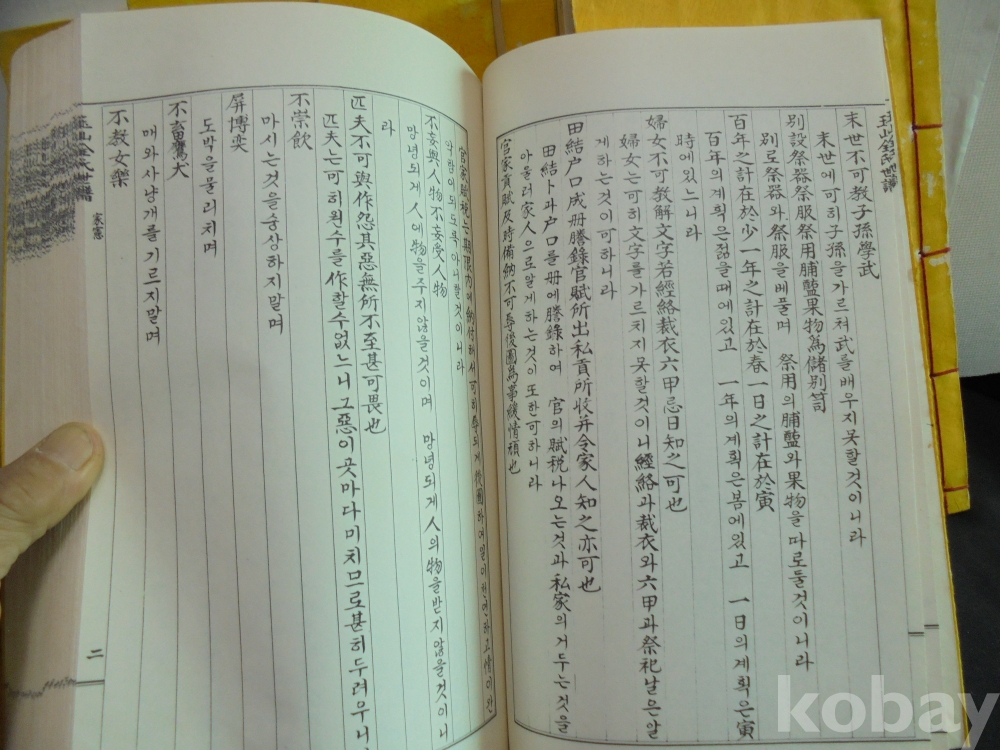 末世不可敎子孫學武
末世에可히子孫을가르쳐武를배우지못할것이니라
別設祭器祭服祭用脯醢果物為儲別笥
別로祭器와祭服을베풀며 祭用의脯醢와果物을따로둘것이니라
百年之計在於少一年之計在於春一日之計在於寅
百年의계획은젊을때에있고 一年의계획은봄에있고 一日의계획은寅
時에있느니라
婦女不可敎解文字若經絡裁衣六甲忌日知之可也
婦女는可히文字를가르치지못할것이니經絡과裁衣와六甲과祭祀날은알
게하는것이可하니라
田結户口成册謄錄官賦所出私貢所收并令家人知之亦可也
田結卜과户口를册에謄錄하여 官의賦税나오는것과私家의거두는것을
아울러家人으로알게하는것이또한可하니라
官家貢賦及時備納不可辱後圖為事緩情頑也
官家賦税는期限內에納付해서可히辱되게後圖하여일이천연하고情이완
악함이되도록아니할것이니라
不妄與人物不妄受人物
망녕되게人에物을주지않을것이며 망녕되게人의物을받지않을것이니
라
匹夫不可與作怨其惡無所不至甚可畏也
匹夫는可히원수를作할수없느니그惡이곳마다미치므로甚히두려우니
不崇飮
마시는것을숭상하지말며
屏博奕
도박을물리치며
不畜鷹犬
매와사냥개를기르지말며
不敎女樂
家憲
二
kobay